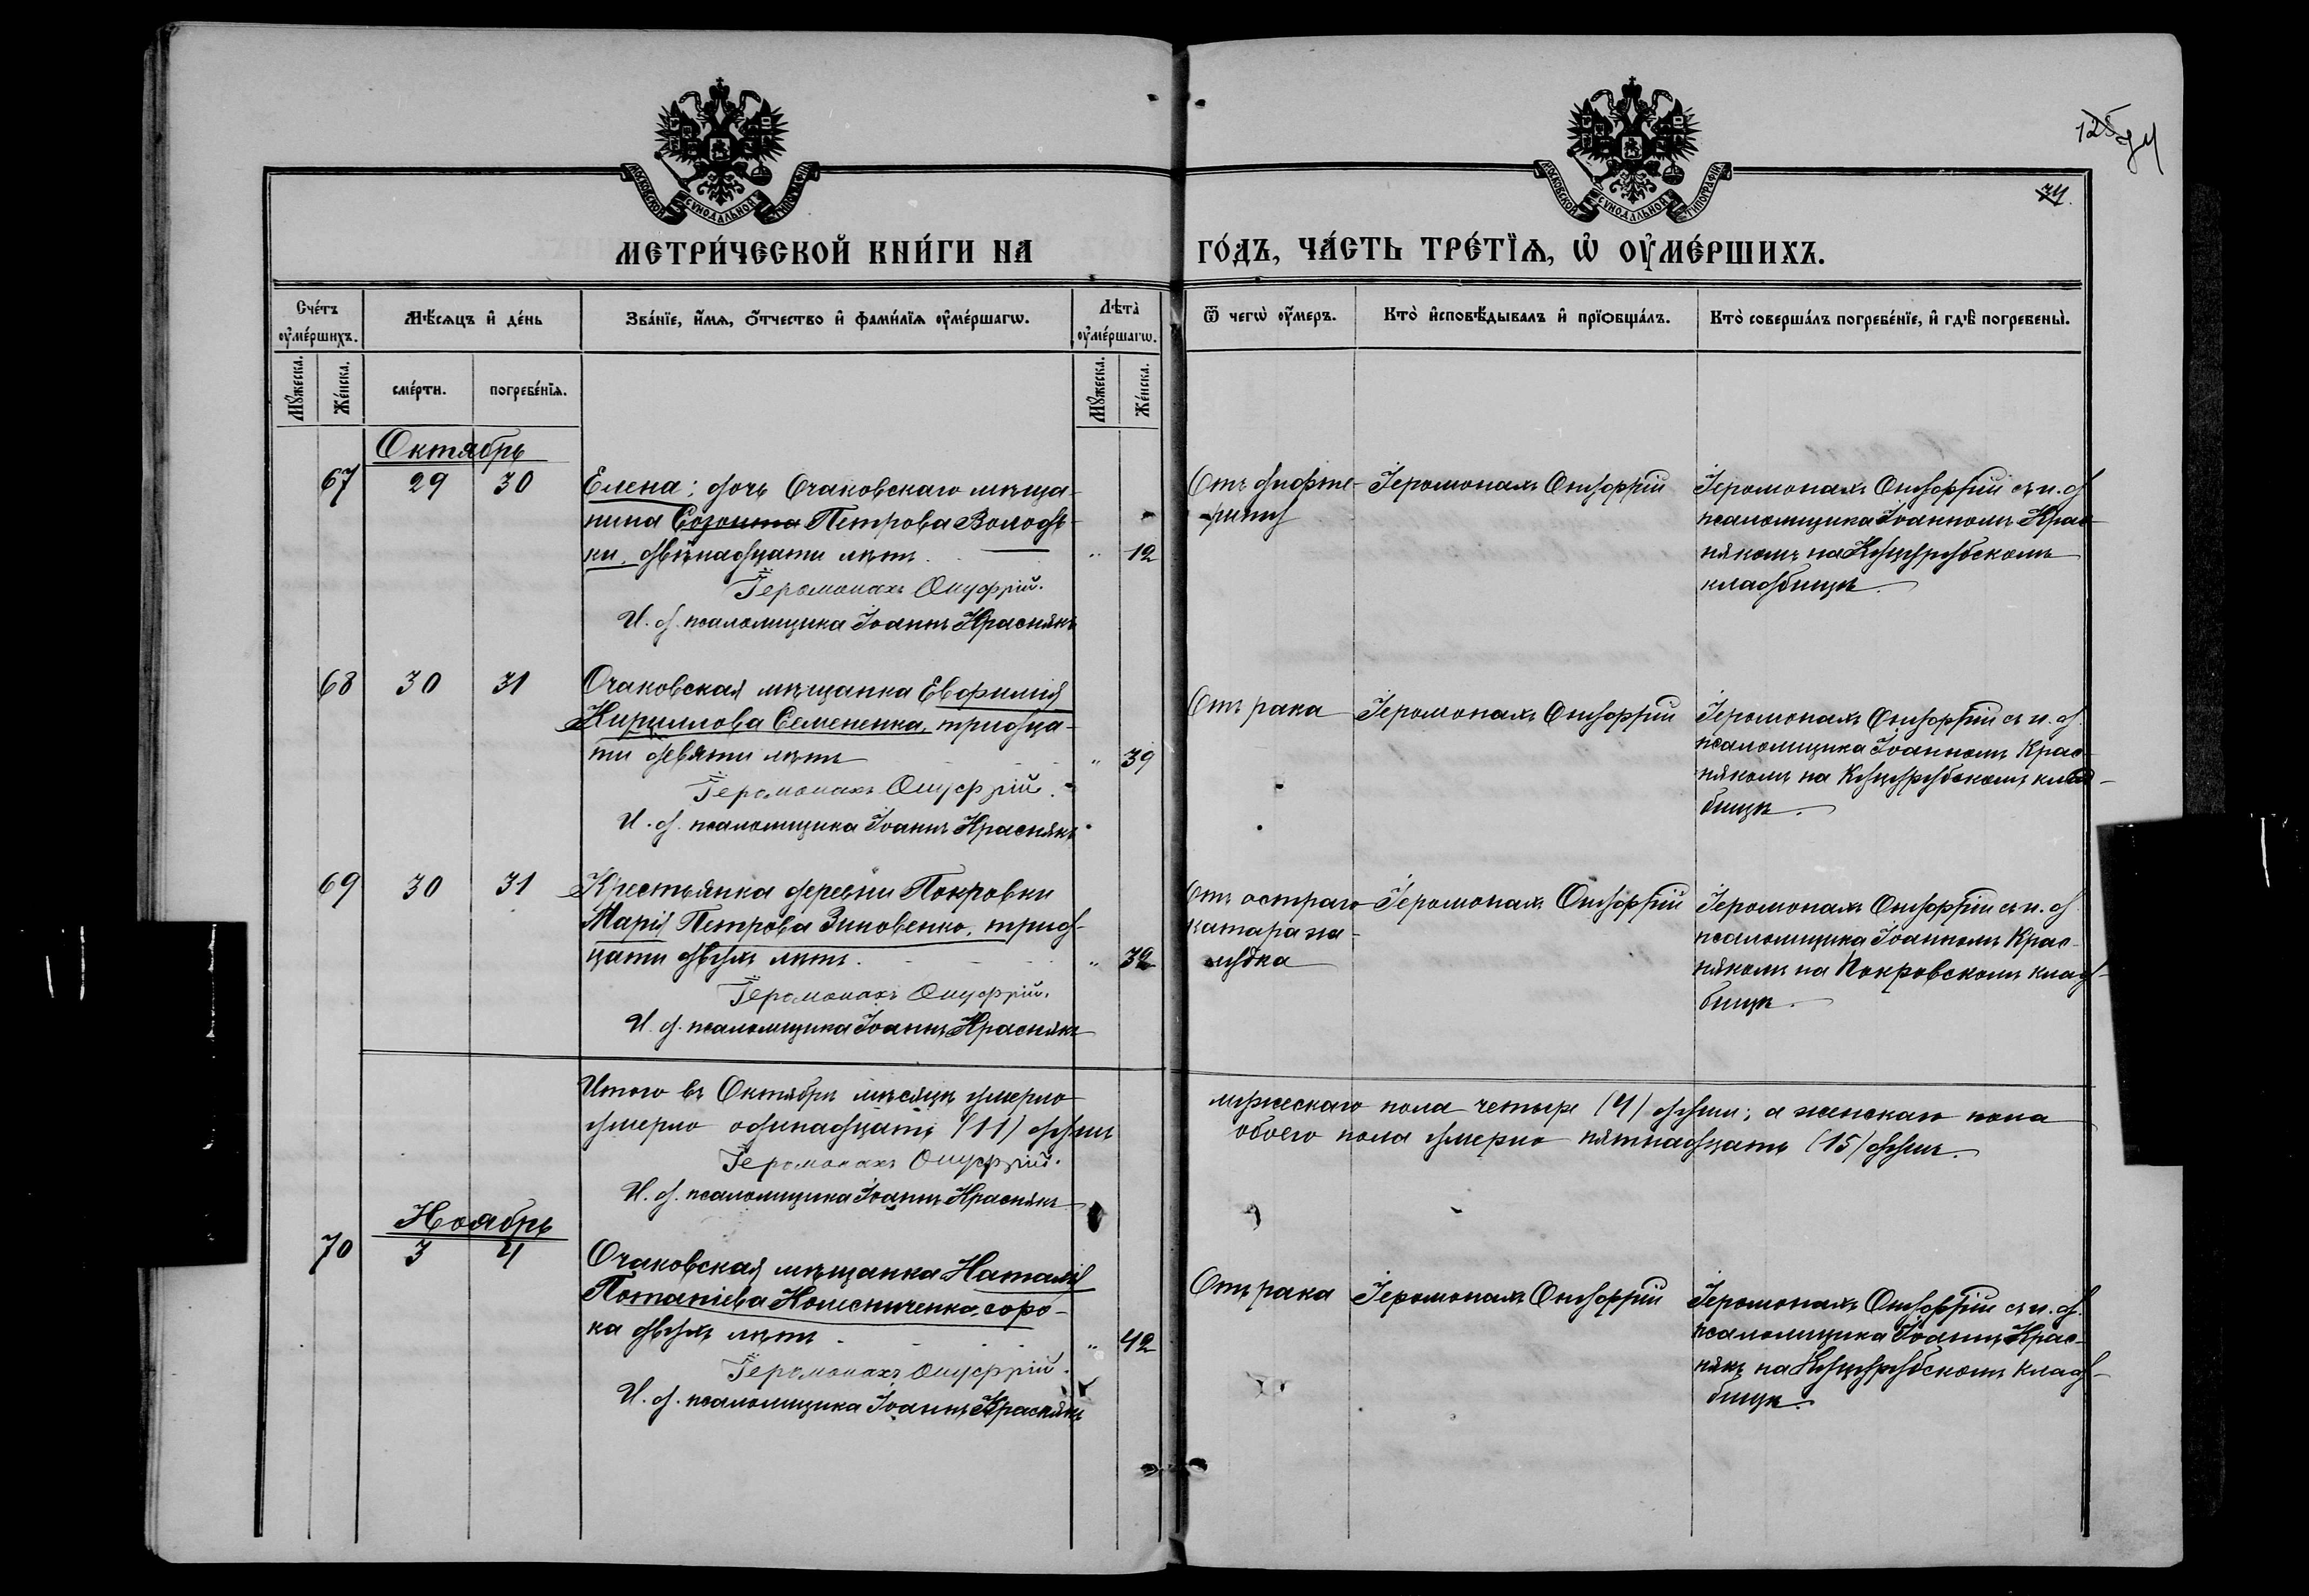 МОСКОВСКОЙ СУНОДАЛЬНОЙ ТИПОГРАФІИ
МОСКОВСКОЙ СУНОДАЛЬНОЙ ТИПОГРАФІИ
125
74
МЕТРИ́ЧЕСКОЙ КНИ́ГИ НА ГО́ДЪ, ЧА́СТЬ ТРЕ́ТЇѦ, Ѡ҆ ОУ҆МЕ́РШИХЪ.
Сче́тъ оу҆ме́ршихъ.
Мꙋ́жеска.
Же́нска.
Мѣ́сѧцъ и҆ де́нь
сме́рти.
погребе́нїѧ.
Зва́нїе, и҆́мѧ, о҆́тчество и҆ фами́лїѧ оу҆ме́ршагѡ.
Лѣ̑та̀ оу҆ме́ршагѡ.
Мꙋ́жеска.
Же́нска.
Ѿ чегѡ̀ оу҆́меръ.
Кто̀ и҆сповѣ́дывалъ и҆ прїѻбща́лъ.
Кто̀ соверша́лъ погребе́нїе, и҆ гдѣ̀ погребены̀.
Октябрь
67 29 30
Елена; дочь Очаковскаго мѣща-
нина Созонта Петрова Володь-
ки, двѣнадцати лѣтъ. " 12
Іеромонахъ Онуфрій.
И. д. псаломщика Іоаннъ Краснякъ
Отъ дифте-
рита
Іеромонахъ Онуфрій
Іеромонахъ Онуфрій съ и. д.
псаломщика Іоанномъ Крас-
някомъ на Куцурубскомъ
кладбищѣ.
68 30 31
Очаковская мѣщанка Евфимія
Кириллова Семененка, тридца-
ти девяти лѣтъ " 39
Іеромонахъ Онуфрій.
И. д. псаломщика Іоаннъ Краснякъ
Отъ рака
Іеромонахъ Онуфрій
Іеромонахъ Онуфрій съ и. д.
псаломщика Іоанномъ Крас-
някомъ на Куцурубскомъ клад-
бищѣ.
69 30 31
Крестьянка деревни Покровки
Марія Петрова Зиновенко, трид-
цати двухъ лѣтъ. " 32
Іеромонахъ Онуфрій.
И. д. псаломщика Іоаннъ Краснякъ
Отъ остраго
катара же-
лудка
Іеромонахъ Онуфрій
Іеромонахъ Онуфрій съ и. д.
псаломщика Іоанномъ Крас-
някомъ на Покровскомъ клад-
бищѣ.
Итого въ Октябрѣ мѣсяцѣ умерло мужескаго пола четыре (4) души; а женскаго пола
умерло одинадцать (11) душъ обоего пола умерло пятнадцать (15) душъ.
Іеромонахъ Онуфрій.
И. д. псаломщика Іоаннъ Краснякъ
Ноябрь
70 3 4
Очаковская мѣщанка Наталія
Потапіева Колесниченко, соро-
ка двухъ лѣтъ. " 42
Іеромонахъ Онуфрій.
И. д. псаломщика Іоаннъ Краснякъ
Отъ рака
Іеромонахъ Онуфрій
Іеромонахъ Онуфрій съ и. д.
псаломщика Іоаннъ Крас-
някъ на Куцурубскомъ клад-
бищѣ.